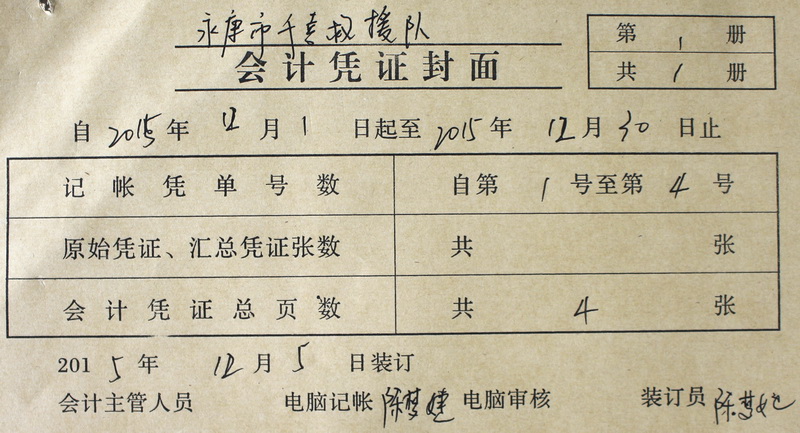 永康市千喜救援队
会计凭证封面
第 1 册
共 1 册
自 2015 年 12 月 1 日起至 2015 年 12 月 30 日止
记帐凭单号数 自第 1 号至第 4 号
原始凭证、汇总凭证张数 共 张
会计凭证总页数 共 4 张
2015 年 12 月 5 日装订
会计主管人员 电脑记帐 陈梦婕 电脑审核 装订员 陈梦